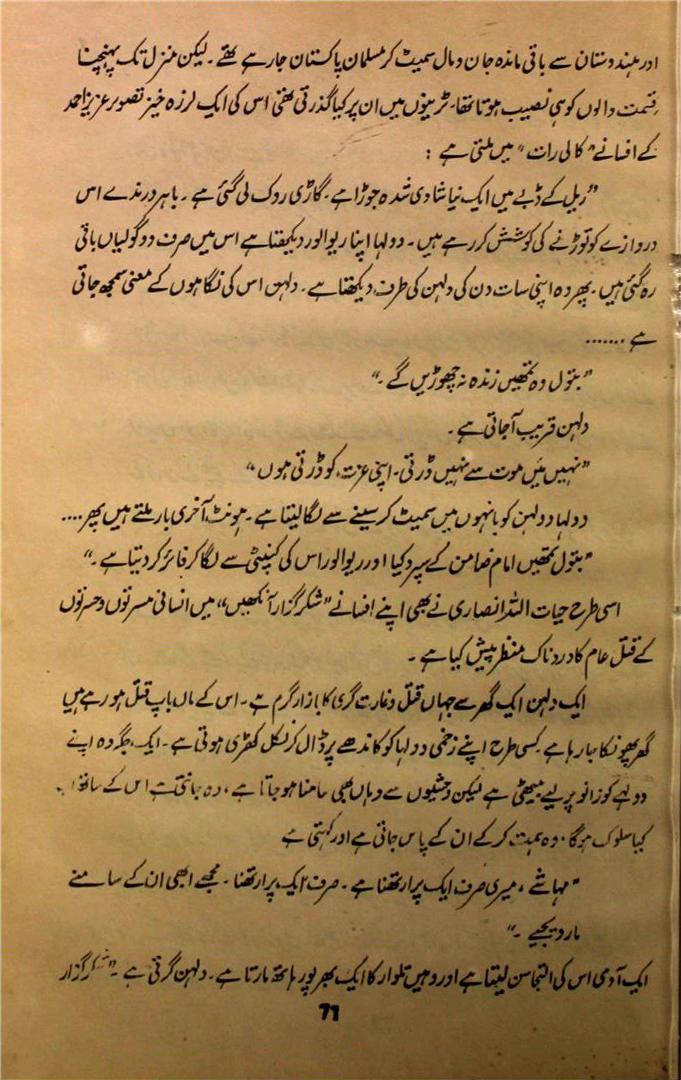 اور ہندوستان سے باقی ماندہ جان و مال سمیٹ کر مسلمان پاکستان جا رہے تھے۔ لیکن منزل تک پہنچنا
قسمت والوں کو ہی نصیب ہوتا تھا۔ ٹرینوں میں ان پر کیا گذرتی تھی اس کی ایک لرزہ خیز تصویر عزیز احمد
کے افسانے "کالی رات" میں ملتی ہے :
"ریل کے ڈبے میں ایک نیا شادی شدہ جوڑا ہے۔ گاڑی روک لی گئی ہے۔ باہر درندے اس
دروازے کو توڑنے کی کوشش کر رہے ہیں۔ دولہا اپنا ریوالور دیکھتا ہے اس میں صرف دو گولیاں باقی
رہ گئی ہیں۔ پھر وہ اپنی سات دن کی دلہن کی طرف دیکھتا ہے۔ دلہن اس کی نگاہوں کے معنی سمجھ جاتی
ہے .......
"بتول وہ تمھیں زندہ نہ چھوڑیں گے۔"
دلہن قریب آجاتی ہے۔
"نہیں میں موت سے نہیں ڈرتی۔ اپنی عزت کو ڈرتی ہوں"
دولہا دولہن کو بانہوں میں سمیٹ کر سینے سے لگا لیتا ہے۔ ہونٹ آخری بار ملتے ہیں پھر....
"بتول تمھیں امام ضامن کے سپرد کیا اور ریوالور اس کی کنپٹی سے لگا کر فائر کر دیتا ہے۔"
اسی طرح حیات اللہ انصاری نے بھی اپنے افسانے "شکر گزار آنکھیں" میں انسانی مسرتوں و حسرتوں
کے قتل عام کا دردناک منظر پیش کیا ہے۔
ایک دلہن ایک گھر سے جہاں قتل و غارت گری کا بازار گرم ہے۔ اس کے ماں باپ قتل ہو رہے ہیں
گھر پھونکا جا رہا ہے کسی طرح اپنے زخمی دولہا کو کاندھے پر ڈال کر نکل کھڑی ہوتی ہے۔ ایک جگہ وہ اپنے
دولہے کو زانو پر لیے بیٹھی ہے لیکن وحشیوں سے وہاں بھی سامنا ہو جاتا ہے، وہ جانتی ہے اس کے ساتھ
کیا سلوک ہوگا۔ وہ ہمت کر کے ان کے پاس جاتی ہے اور کہتی ہے
"مہاشے، میری صرف ایک پرارتھنا ہے۔ صرف ایک پرارتھنا۔ مجھے ابھی ان کے سامنے
مار دیجیے۔"
ایک آدمی اس کی التجا سن لیتا ہے اور وہیں تلوار کا ایک بھرپور ہاتھ مارتا ہے۔ دلہن گرتی ہے۔ "شکر گزار
71